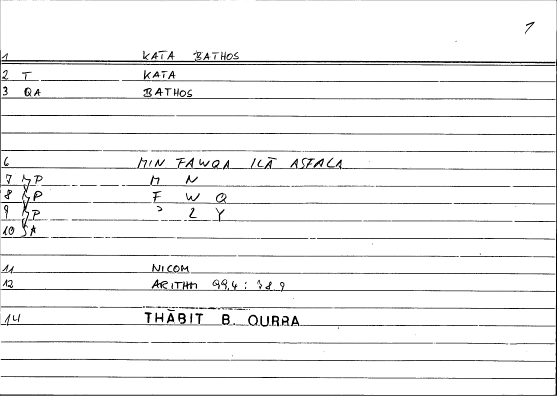 1
1 KATA BATHOS
2 T KATA
3 QA BATHOS
6 MIN FAWQA ILĀ ASFALA
7 P M N
8 P F W Q
9 P ʾ L Y
10 A
11 NICOM
12 ARITHM 99,4 : 38.9
14 THĀBIT B. QURRA